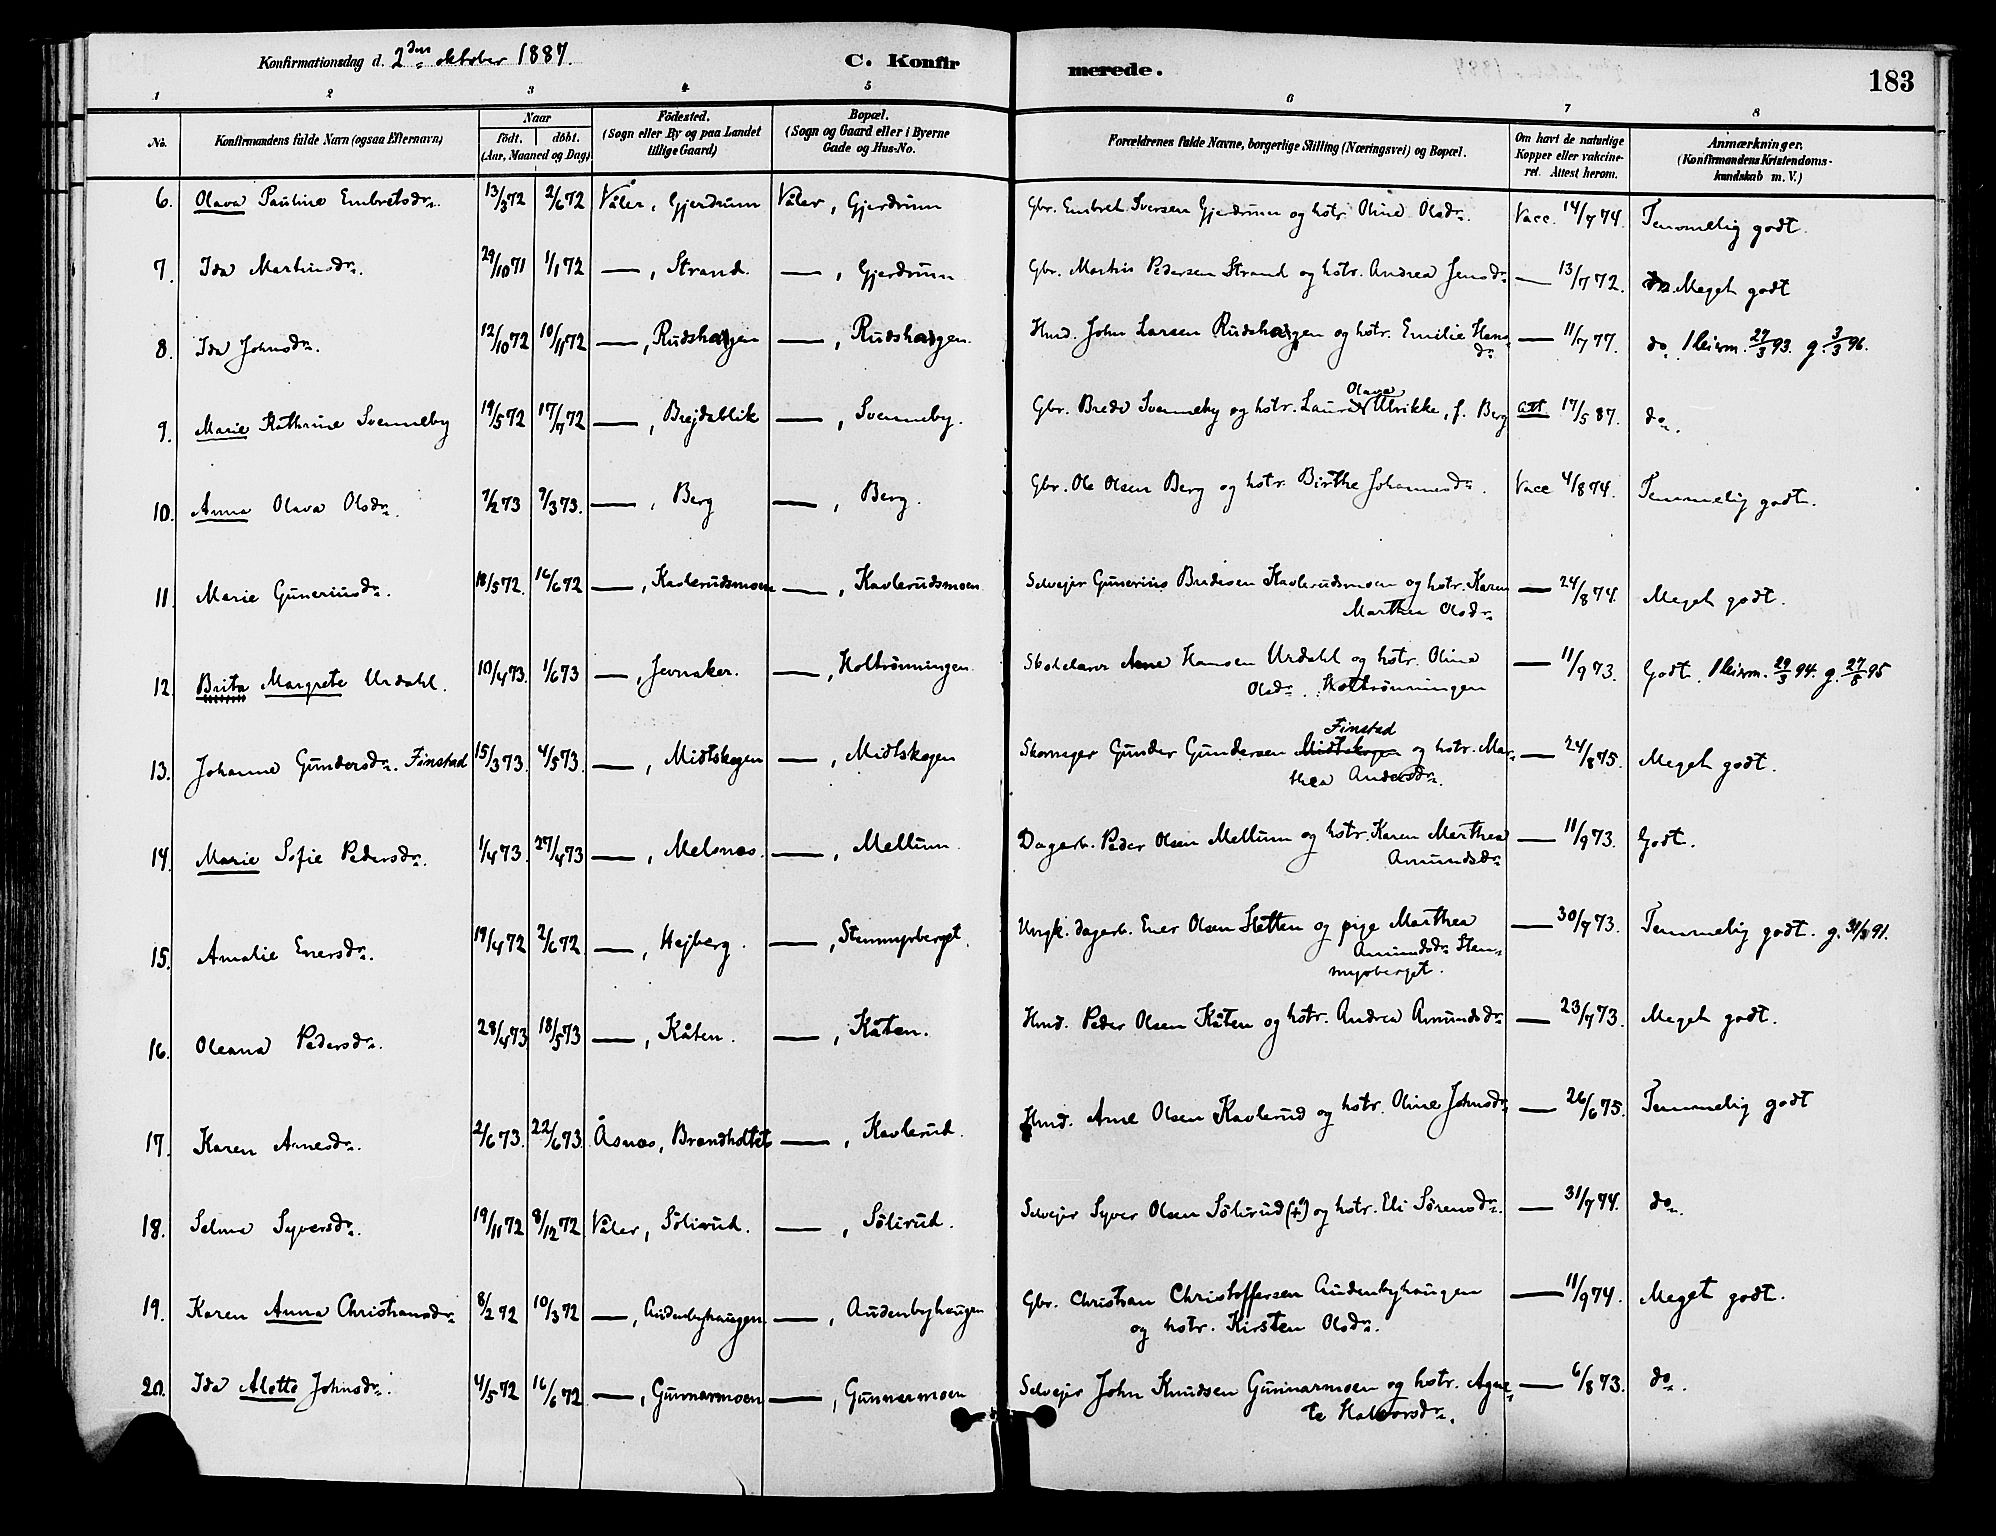 Konfirmationsdag d. 2den oktober 1887. C. Konfirmerede. 183
1 2 3 4 5 6 7 8
No. Konfirmandens fulde Navn (ogsaa Efternavn) Naar født. døbt. (Aar, Maaned og Dag) Fødested. (Sogn eller By og paa Landet tillige Gaard) Bopæl. (Sogn og Gaard eller i Byerne Gade og Hus-No. Forældrenes fulde Navne, borgerlige Stilling (Næringsvei) og Bopæl. Om havt de naturlige Kopper eller vakcineret. Attest herom. Anmærkninger. (Konfirmandens Kristendomskundskab m. V.)
6. Olava Pauline Embretsdr. 13/3 72 2/6 72 Våler, Gjerdrum Våler, Gjerdrum Gbr. Embret Iversen Gjerdrum og hstr. Oline Olsdr. Vacc. 14/7 74. Temmelig godt.
7. Ida Martinsdr. 29/10 71 1/1 72 — , Strand. — , Gjerdrum Gbr. Martin Pedersen Strand og hstr. Andrea Jensdr. — 13/7 72. Meget godt
8. Ida Johnsdr. 12/10 72 10/11 72 — , Rudshagen — , Rudshagen. Hmd. John Larsen Rudshagen og hstr. Emilie Hans-
dr. — 11/7 77. do. 27/3 93. g. 3/3 96.
9. Marie Kathrine Svenneby 19/5 72 17/7 72 — , Brejdablik — , Svenneby. Gbr. Brede Svenneby og hstr. Laura Olava Ulrikke, f. Berg att. 17/5 87. do.
10. Anna Olava Olsdr. 7/2 73 9/3 73. — , Berg — , Berg. Gbr. Ole Olsen Berg og hstr. Birthe Johannesdr. Vacc 4/8 74. Temmelig godt.
11. Marie Guneriusdr. 18/5 72. 16/6 72 — , Kavlerudsmoen — , Kavlerudsmoen Selvejer Gunerius Bredesen Kavlerudsmoen og hstr. Karen
Marthea Olsdr. — 24/8 74. Meget godt.
12. Brita Margrete Urdahl. 10/4 73. 1/6 73 — , Jevnaker. — , Holtrønningen Skolelærer Arne Hansen Urdahl og hstr. Olina
Olsdr. Holtrønningen — 11/9 73. Godt. 29/3 94. g. 27/8 95
13. Johanne Gundersdr. Finstad 15/3 73. 4/5 73. — , Midtskogen — , Midtskogen Skomager Gunder Gundersen Midtskogen Finstad og hstr. Mar-
thea Andersdr. — 24/8 75. Meget godt.
14. Marie Sofie Pedersdr. 1/4 73. 27/4 73 — , Melsnes. — , Mellum. Dagarb. Peder Olsen Mellum og hstr. Karen Marthea
Amundsdr. — 11/9 73. Godt.
15. Amalie Enersdr. 19/4 72 2/6 72 — , Hejberg. — , Stenmyrberget. Ungk. dagarb. Ener Olsen Sletten og pige Marthea
Amundsdr. Sten-
myrberget. — 30/7 73. Temmelig godt. g. 31/8 91.
16. Oleana Pedersdr. 28/4 73 18/5 73 — , Kåten. — , Kåten. Hmd. Peder Olsen Kåten og hstr. Andrea Amundsdr. — 23/7 73. Meget godt.
17. Karen Arnesdr. 2/6 73. 22/6 73. Åsnes, Brandholtet — , Kavlerud. Hmd. Arne Olsen Kavlerud og hstr. Oline Johnsdr. — 26/6 75. Temmelig godt
18. Selma Syversdr. 19/11 72 8/12 72 Våler, Sølirud. — , Sølirud. Selvejer Syver Olsen Sølirud (†) og hstr. Eli Sørensdr. — 31/7 74. do.
19. Karen Anna Christiansdr. 8/2 72 10/3 72 — , Audenbyhaugen. — , Audenbyhaugen Gbr. Christian Christoffersen Audenbyhaugen
og hstr. Kirsten Olsdr. — 11/9 74. Meget godt.
20. Ida Alette Johnsdr. 4/5 72 16/6 72 — , Gunnarmoen — , Gunnarmoen Selvejer John Knudsen Gunnarmoen og hstr. Agne-
te Halvorsdr. — 6/8 73. do.